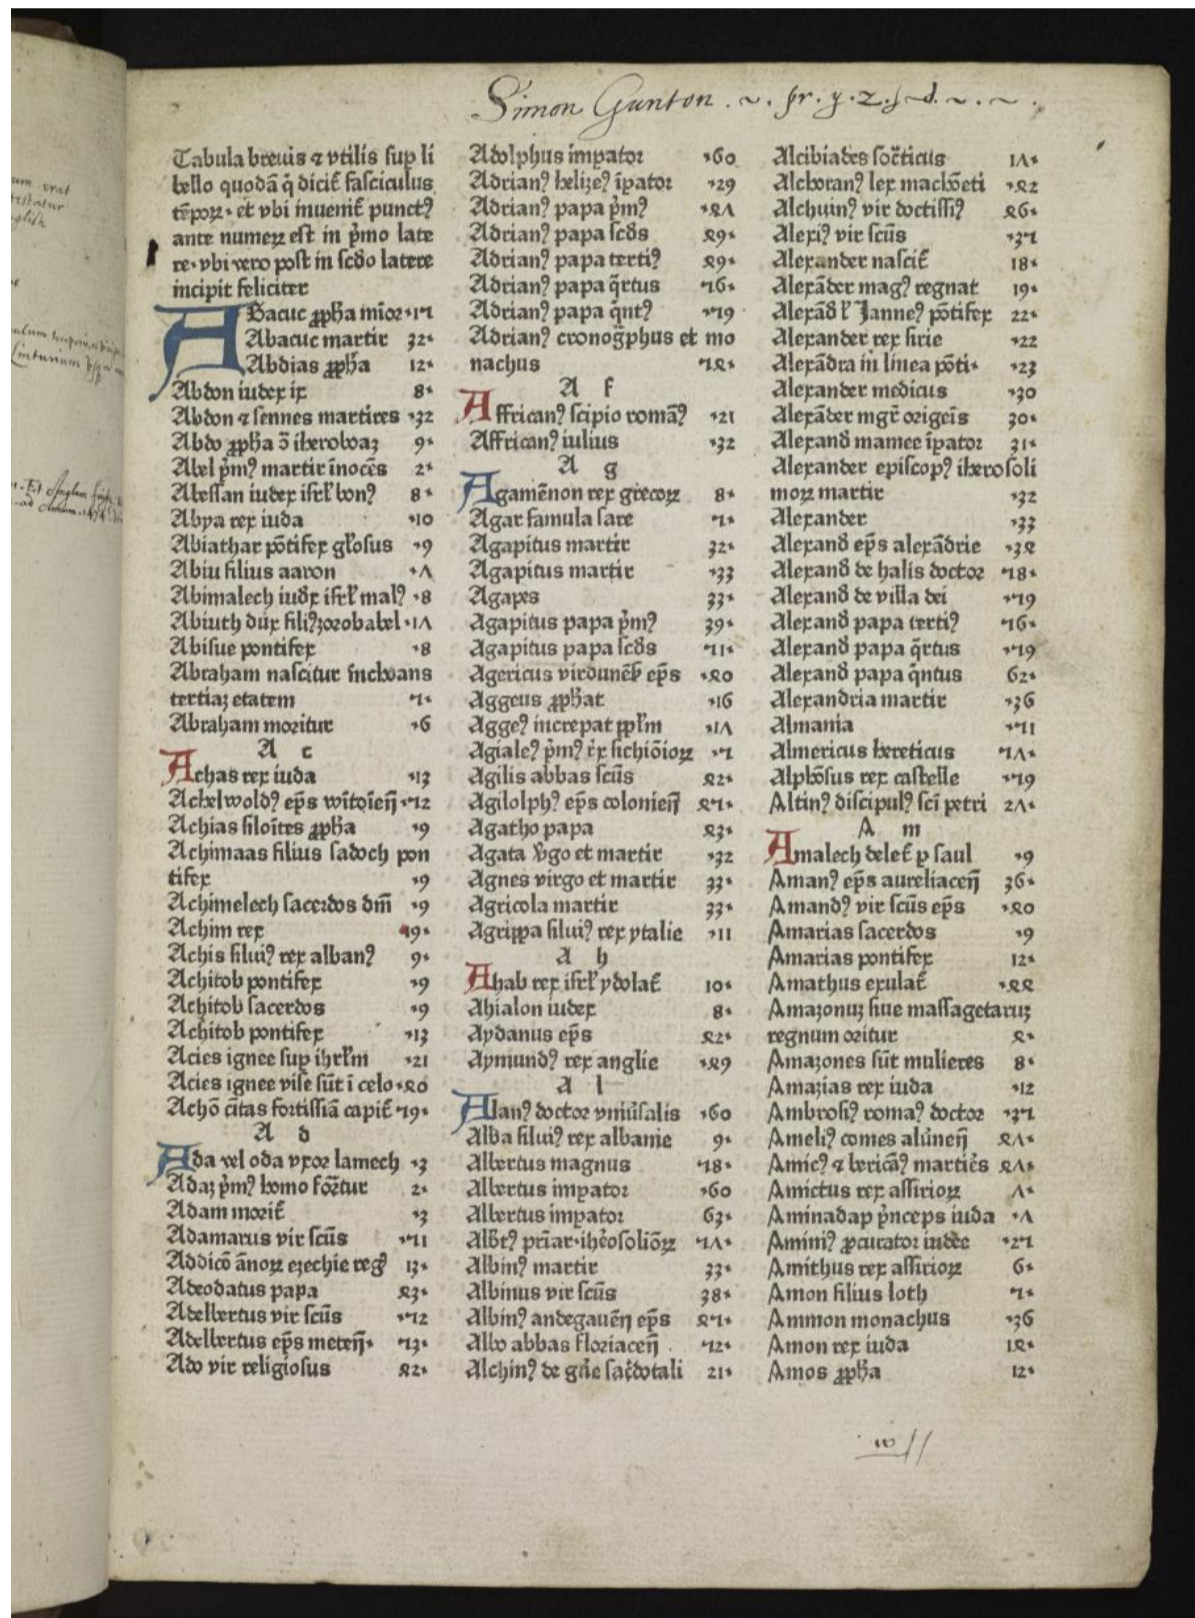 Simon Gunton . ~ . pr . y . z . s d . ~ . ~ .
Tabula breuis ⁊ vtilis sup li
bello quodā q̇ dicit̄ fasciculus
tēporꝝ· et vbi inuenit̄ punctꝰ
ante numeꝝ est in p̄mo late
re· vbi vero post in scdo latere
incipit feliciter
ABacuc ꝓpha mīor ·15
Abacuc martir 32·
Abdias ꝓpha 12·
Abdon iudex ix 8·
Abdon ⁊ sennes martires ·32
Abdo ꝓpha ↄ̄ iheroboaꝫ 9·
Abel p̄mꝰ martir īnocēs 2·
Abessan iudex isrl̄ bonꝰ 8·
Abya rex iuda ·10
Abiathar pōtifex gl̄osus ·9
Abiu filius aaron ·7
Abimalech iudx̄ isrl̄ malꝰ ·8
Abiuth dux filiꝰ zorobabel ·17
Abisue pontifex ·8
Abraham nascitur inchoans
tertiaꝫ etatem 5·
Abraham moritur ·6
A c
Achas rex iuda ·13
Achelwoldꝰ ep̄s witōien̄ ·52
Achias siloītes ꝓpha ·9
Achimaas filius sadoch pon
tifex ·9
Achimelech sacerdos dm̄ ·9
Achim rex 19·
Achis siluiꝰ rex albanꝰ 9·
Achitob pontifex ·9
Achitob sacerdos ·9
Achitob pontifex ·13
Acies ignee sup ihrl̄m ·21
Acies ignee vise sūt i celo ·40
Achō c̄itas fortissīa capit̄ 59·
A d
Ada vel oda vxor lamech ·3
Adaꝫ p̄mꝰ homo fōrtur 2·
Adam morit̄ ·3
Adamarus vir scūs ·51
Addicō ānoꝝ ezechie regꝭ 13·
Adeodatus papa 43·
Adelbertus vir scūs ·52
Adelbertus ep̄s meten̄· 53·
Ado vir religiosus 42·
Adolphus impator ·60
Adrianꝰ helizeꝰ īpator ·29
Adrianꝰ papa p̄mꝰ ·47
Adrianꝰ papa scds 49·
Adrianꝰ papa tertiꝰ 49·
Adrianꝰ papa q̄rtus 56·
Adrianꝰ papa q̄ntꝰ ·59
Adrianꝰ cronogp̄hus et mo
nachus 54·
A f
Affricanꝰ scipio romāꝰ ·21
Affricanꝰ iulius ·32
A g
Agamēnon rex grecoꝝ 8·
Agar famula sare 5·
Agapitus martir 32·
Agapitus martir ·33
Agapes 33·
Agapitus papa p̄mꝰ 39·
Agapitus papa scds 51·
Agericus virdunēn̄ ep̄s ·40
Aggeus ꝓphat ·16
Aggeꝰ increpat ppl̄m ·17
Agialeꝰ p̄mꝰ r̄x sichiōioꝝ ·5
Agilis abbas scūs 42·
Agilolphꝰ ep̄s colonien̄ 45·
Agatho papa 43·
Agata v̄go et martir ·32
Agnes virgo et martir 33·
Agricola martir 33·
Agrippa siluiꝰ rex ytalie ·11
A h
Ahab rex isrl̄ ydolat̄ 10·
Ahialon iudex 8·
Aydanus ep̄s 42·
Aymundꝰ rex anglie ·49
A l
Alanꝰ doctor vniūsalis ·60
Alba siluiꝰ rex albanie 9·
Albertus magnus 58·
Albertus impator ·60
Albertus impator 63·
Alb̄tꝰ pr̄iar· ihēosoliōꝝ 57·
Albinꝰ martir 33·
Albinus vir scūs 38·
Albinꝰ andegauēn̄ ep̄s 45·
Albo abbas floriacen̄ 52·
Alchinꝰ de gn̄e sac̄dotali 21·
Alcibiades soc̄ticus 17·
Alchoranꝰ lex machōeti ·42
Alchuinꝰ vir doctissiꝰ 46·
Alexiꝰ vir scūs ·35
Alexander nascit̄ 18·
Alexāder magꝰ regnat 19·
Alexād̄ r̄ Janneꝰ pōtifex 22·
Alexander rex sirie ·22
Alexādra in linea pōti· ·23
Alexander medicus ·30
Alexāder mgr̄ origeīs 30·
Alexand̄ mamee īpator 31·
Alexander episcopꝰ iherosoli
moꝝ martir ·32
Alexander ·33
Alexand̄ ep̄s alexādrie ·34
Alexand̄ de halis doctor 58·
Alexand̄ de villa dei ·59
Alexand̄ papa tertiꝰ 56·
Alexand̄ papa q̄rtus ·59
Alexand̄ papa q̄ntus 62·
Alexandria martir ·36
Almania ·51
Almericus hereticus 57·
Alphōsus rex castelle ·59
Altinꝰ discipulꝰ sci petri 27·
A m
Amalech delet̄ p saul ·9
Amanꝰ ep̄s aureliacen̄ 36·
Amandꝰ vir scūs ep̄s ·40
Amarias sacerdos ·9
Amarias pontifex 12·
Amathus exulat̄ ·44
Amazonuꝫ siue massagetaruꝫ
regnum oritur 4·
Amazones sūt mulieres 8·
Amazias rex iuda ·12
Ambrosiꝰ romaꝰ doctor ·35
Ameliꝰ comes alūnen̄ 47·
Amicꝰ ⁊ bericāꝰ martiēs 47·
Amictus rex assirioꝝ 7·
Aminadap p̄nceps iuda ·7
Aminiꝰ ꝓcurator iudēe ·25
Amithus rex assirioꝝ 6·
Amon filius loth 5·
Ammon monachus ·36
Amon rex iuda 14·
Amos ꝓpha 12·